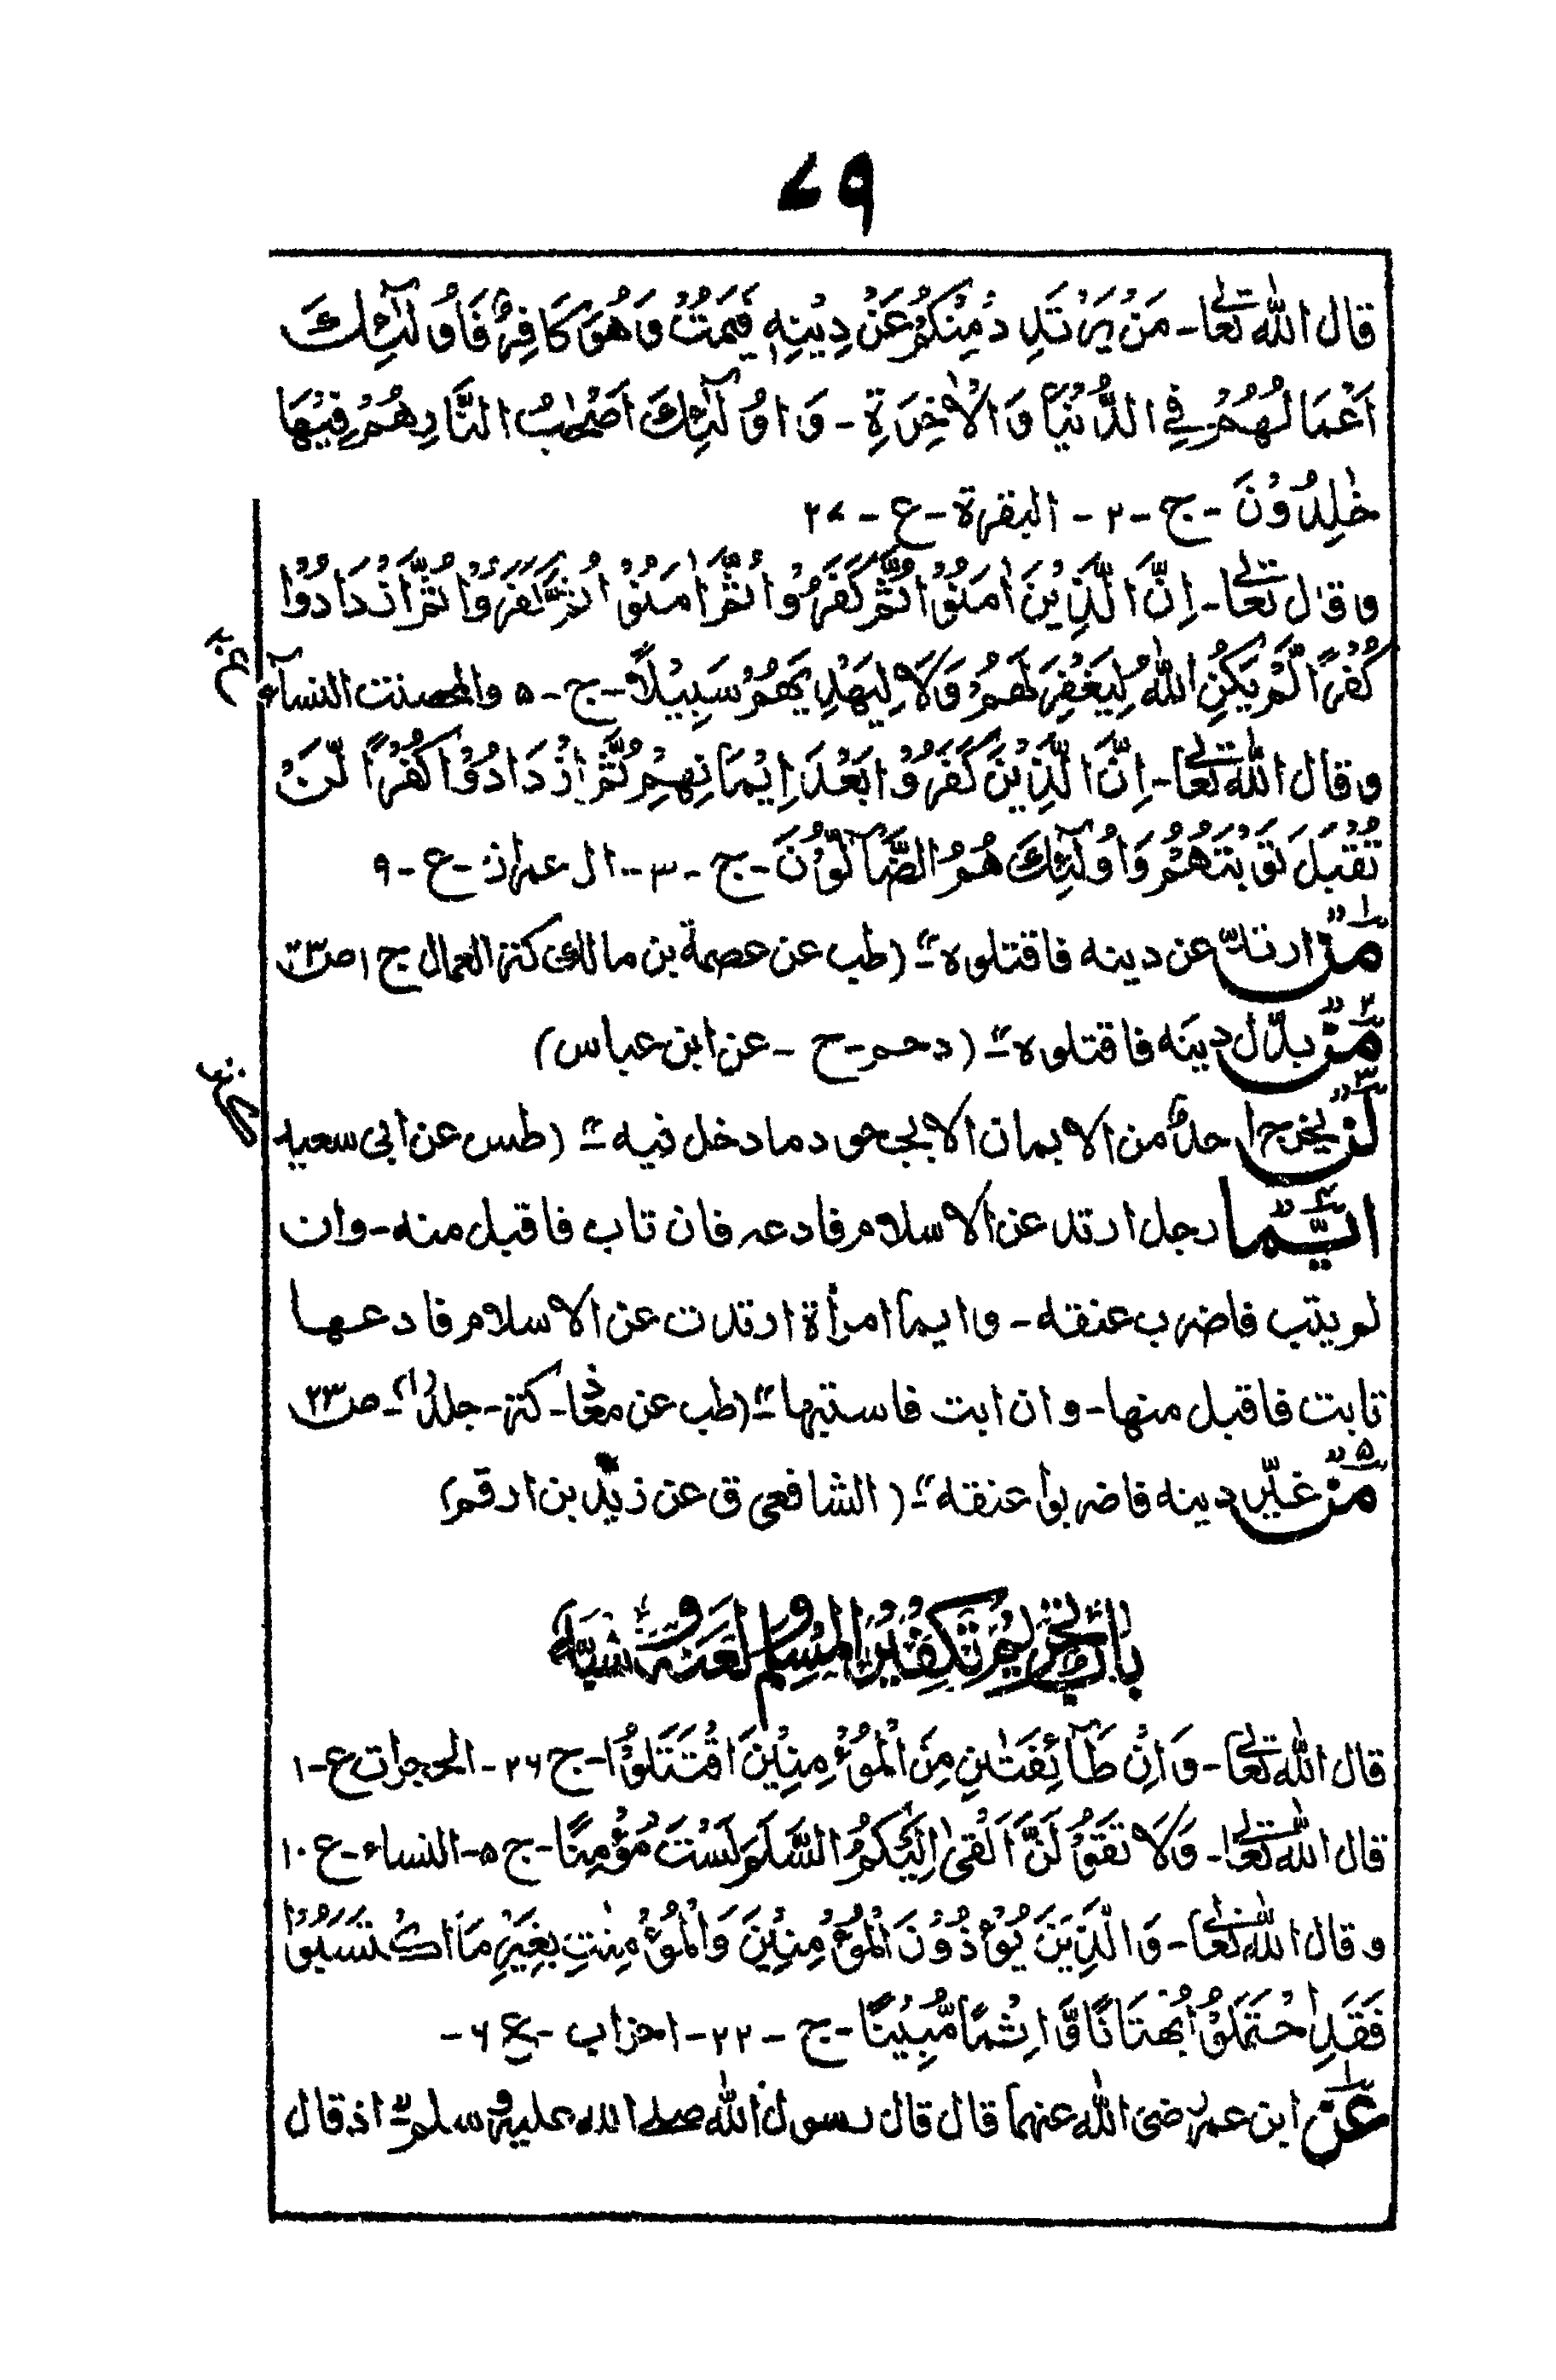 ۷۹
قال الله تعالى۔ مَنْ يَرْتَدِدْ مِنْكُمْ عَنْ دِيْنِهٖ فَيَمُتْ وَهُوَ كَافِرٌ فَاُولٰٓئِكَ
اَعْمَالُهُمْ فِي الدُّنْيَا وَالْاٰخِرَةِ ۔ وَاُولٰٓئِكَ اَصْحٰبُ النَّارِ هُمْ فِيْهَا
خٰلِدُوْنَ ۔ ج ۔ ۲ ۔ البقرة ۔ ع ۔ ۲۷
وقال تعالى۔ اِنَّ الَّذِيْنَ اٰمَنُوْا ثُمَّ كَفَرُوْا ثُمَّ اٰمَنُوْا ثُمَّ كَفَرُوْا ثُمَّ ازْدَادُوْا
كُفْرًا لَّمْ يَكُنِ اللهُ لِيَغْفِرَ لَهُمْ وَلَا لِيَهْدِيَهُمْ سَبِيْلًا ۔ ج ۔ ۵ والمحصنت النسآء
وقال الله تعالى۔ اِنَّ الَّذِيْنَ كَفَرُوْا بَعْدَ اِيْمَانِهِمْ ثُمَّ ازْدَادُوْا كُفْرًا لَّنْ
تُقْبَلَ تَوْبَتُهُمْ وَاُولٰٓئِكَ هُمُ الضَّآلُّوْنَ ۔ ج ۔ ۳ ۔ ال عمران ۔ ع ۔ ۹
۱ "مَنْ ارتدّ عن دينه فاقتلوه" (طب عن عصمة بن مالك كنز العمال ج ۱ ص۲۳)
۲ "مَنْ بدّل دينه فاقتلوه" (د حم ۔ ح ۔ عن ابن عباس)
۳ "لن يخرج احدٌ من الايمان الا بجحود ما دخل فيه" (طس عن ابى سعيد
۴ "ايّما رجل ارتد عن الاسلام فادعه فان تاب فاقبل منه ۔ وان
لم يتب فاضرب عنقه ۔ وايما امرأة ارتدت عن الاسلام فادعها
تابت فاقبل منها ۔ وان ابت فاستتبها" (طب عن معاذ ۔ كنز ۔ جلد ۱ ۔ ص۲۳
۵ "مَنْ غيّر دينه فاضربوا عنقه" (الشافعى ق عن زيد بن ارقم)
بابُ تَحْرِيْمِ تَكْفِيْرِ الْمُسْلِمِ وَلَعْنِهٖ وَسَبِّهٖ
قال الله تعالى ۔ وَاِنْ طَآئِفَتٰنِ مِنَ الْمُؤْمِنِيْنَ اقْتَتَلُوْا ۔ ج ۲۶ ۔ الحجرات ع ۔ ۱
قال الله تعالى ۔ وَلَا تَقُوْلُوْا لِمَنْ اَلْقٰى اِلَيْكُمُ السَّلٰمَ لَسْتَ مُؤْمِنًا ۔ ج ۵ ۔ النساء ۔ ع ۱۰
وقال الله تعالى ۔ وَالَّذِيْنَ يُؤْذُوْنَ الْمُؤْمِنِيْنَ وَالْمُؤْمِنٰتِ بِغَيْرِ مَا اكْتَسَبُوْا
فَقَدِ احْتَمَلُوْا بُهْتَانًا وَّاِثْمًا مُّبِيْنًا ۔ ج ۔ ۲۲ ۔ احزاب ۔ ع ۶ ۔
۱ عَنْ ابن عمر رضى الله عنهما قال قال رسول الله صلى الله عليه وسلم" اذ قال